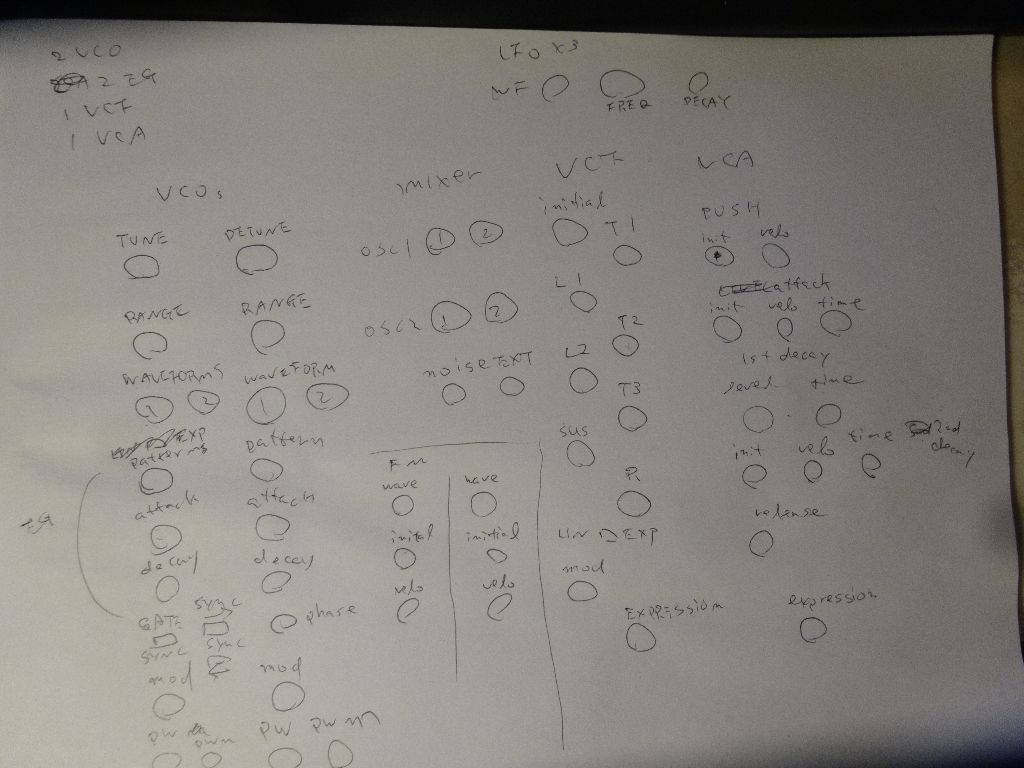 2 VCO
2 EG
1 VCF
1 VCA
LFO x3
WF
FREQ
DECAY
VCOs
TUNE
DETUNE
RANGE
RANGE
WAVEFORMS
waveFORM
1 2
1 2
EXP
patterns
pattern
EG
attack
attack
decay
decay
GATE
SYNC
phase
SYNC
SYNC
mod
mod
PW
PWM
PW PWM
mixer
OSC1 1 2
OSC2 1 2
noise EXT
FM
wave
wave
inital
initial
velo
velo
VCF
initial
T1
L1
T2
L2
T3
SUS
R
LIN EXP
mod
EXPRESSION
VCA
PUSH
init velo
attack
init velo time
1st decay
level time
2nd
decay
init velo time
release
expression